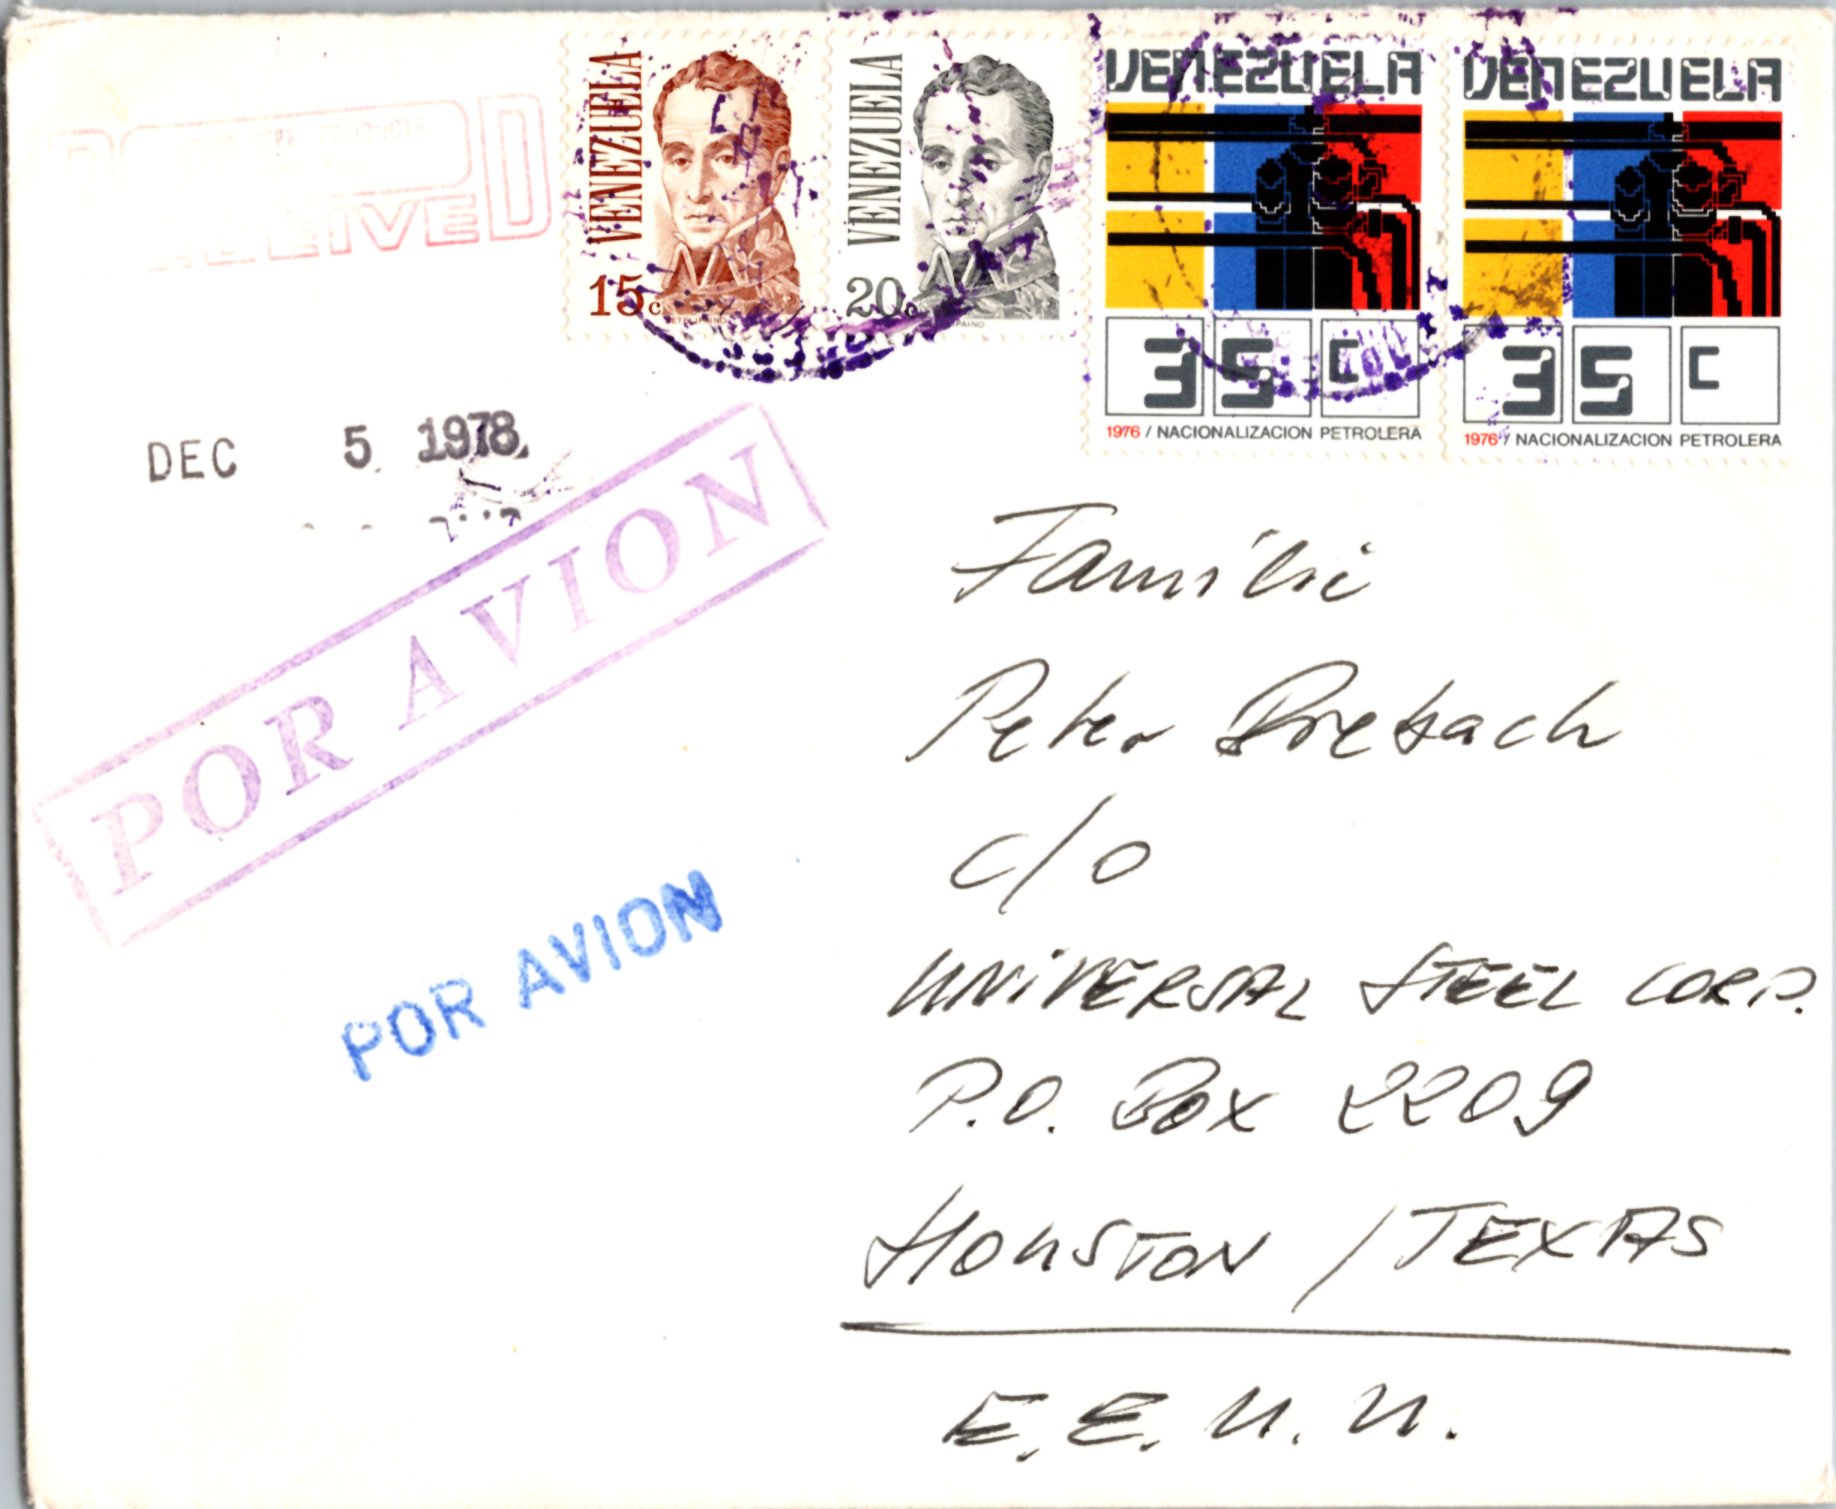 VENEZUELA
15c
VENEZUELA
20c
VENEZUELA
35 C
1976 / NACIONALIZACION PETROLERA
VENEZUELA
35 C
1976 / NACIONALIZACION PETROLERA
PRODUCTS
RECEIVED
DEC 5 1978
POR AVION
POR AVION
Famili
Peter
c/o
UNIVERSAL STEEL CORP.
P.O. Box 2209
HOUSTON / TEXAS
E.E.U.U.